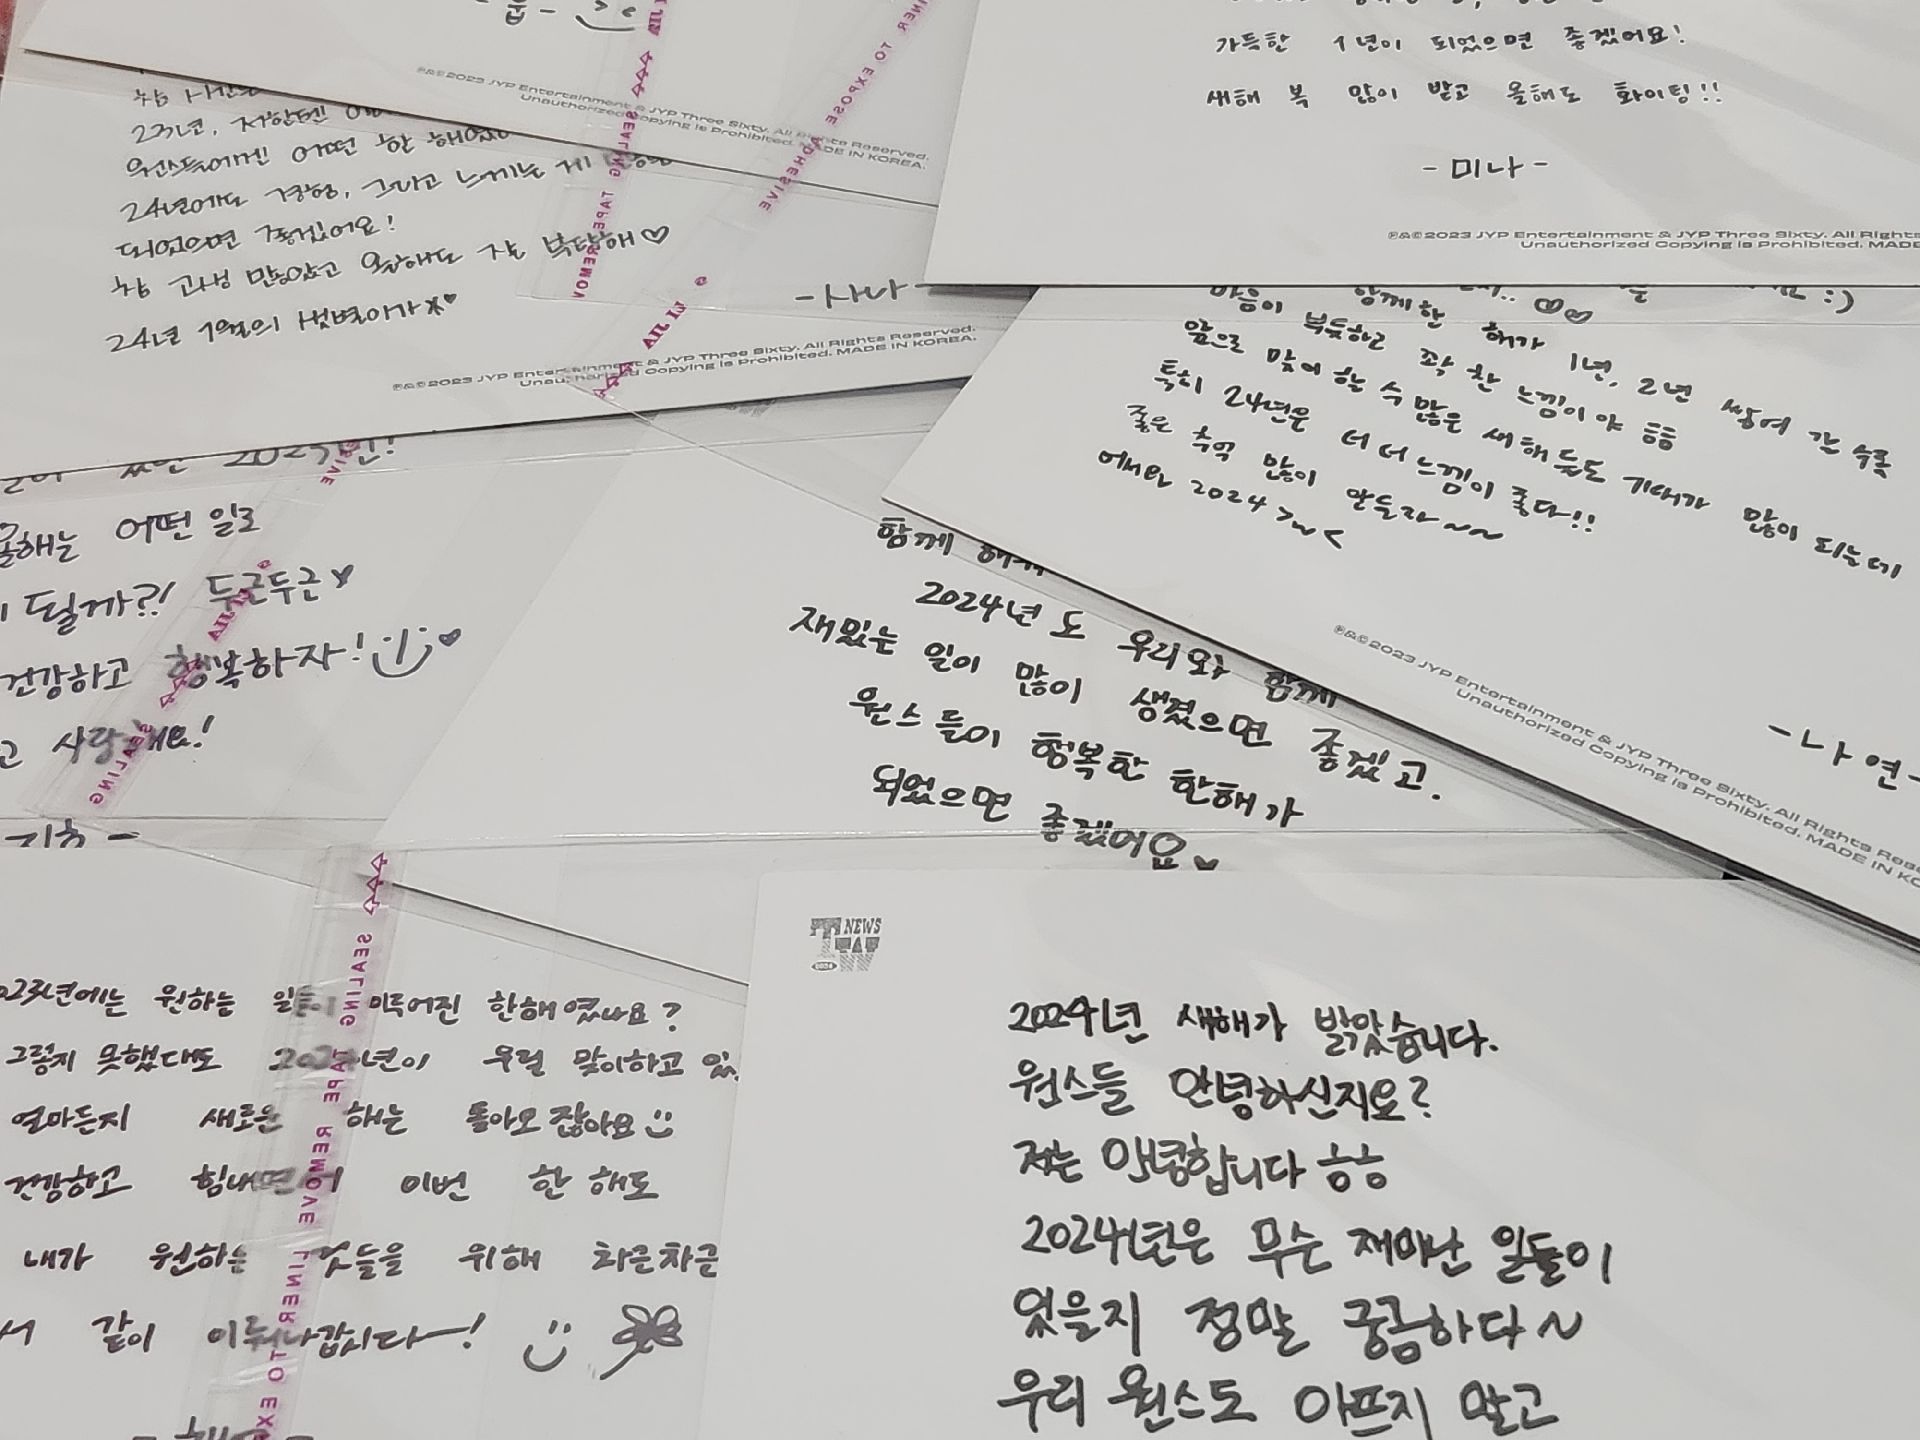 윤 -
©2023 JYP Entertainment & JYP Three Sixty. All Rights Reserved.
Unauthorized Copying is Prohibited. MADE IN KOREA.
23년, 저한텐
원스들에겐 어떤 한 해였
24년에도 경험, 그리고 느끼는 게
되었으면 좋겠어요!
참 고생 많았고 올해도 잘 부탁해♡
24년 1월의 햇별이가
- 사나 -
℗&©2023 JYP Entertainment & JYP Three Sixty. All Rights Reserved.
Unauthorized Copying is Prohibited. MADE IN KOREA.
가득한 1년이 되었으면 좋겠어요!
새해 복 많이 받고 올해도 화이팅!!
- 미나 -
℗&©2023 JYP Entertainment & JYP Three Sixty. All Rights
Unauthorized Copying is Prohibited. MADE
함께한 해가 1년, 2년 쌓여 갈수록
마음이 뿌듯하고 꽉 찬 느낌이야 흠흠
앞으로 맞이 할 수 많은 새해들도 기대가 많이 되는데
특히 24년은 더 더 느낌이 좋다!!
좋은 추억 많이 만들자~~
어서와 2024 >~<
- 나연 -
℗&©2023 JYP Entertainment & JYP Three Sixty. All Rights Rese
Unauthorized Copying is Prohibited. MADE IN KO
2023년!
올해는 어떤 일로
될까?! 두근두근
건강하고 행복하자!
고 사랑해요!
지효 -
함께 해서
2024년도 우리와 함께
재밌는 일이 많이 생겼으면 좋겠고.
원스들이 행복한 한해가
되었으면 좋겠어요
023년에는 원하는 일들이 이루어진 한해였나요?
그렇지 못했대도 2024년이 우릴 맞이하고 있
얼마든지 새로운 해는 돌아오잖아요
건강하고 힘내면서 이번 한 해도
내가 원하는 것들을 위해 차근차근
서 같이 이뤄나갑시다~!
NEWS
2024년 새해가 밝았습니다.
원스들 안녕하신지요?
저는 안녕합니다 ㅎㅎ
2024년은 무슨 재미난 일들이
있을지 정말 궁금하다~
우리 원스도 아프지 말고
SEALING TAPE REMOVE LINER TO EXPOSE ADHESIVE